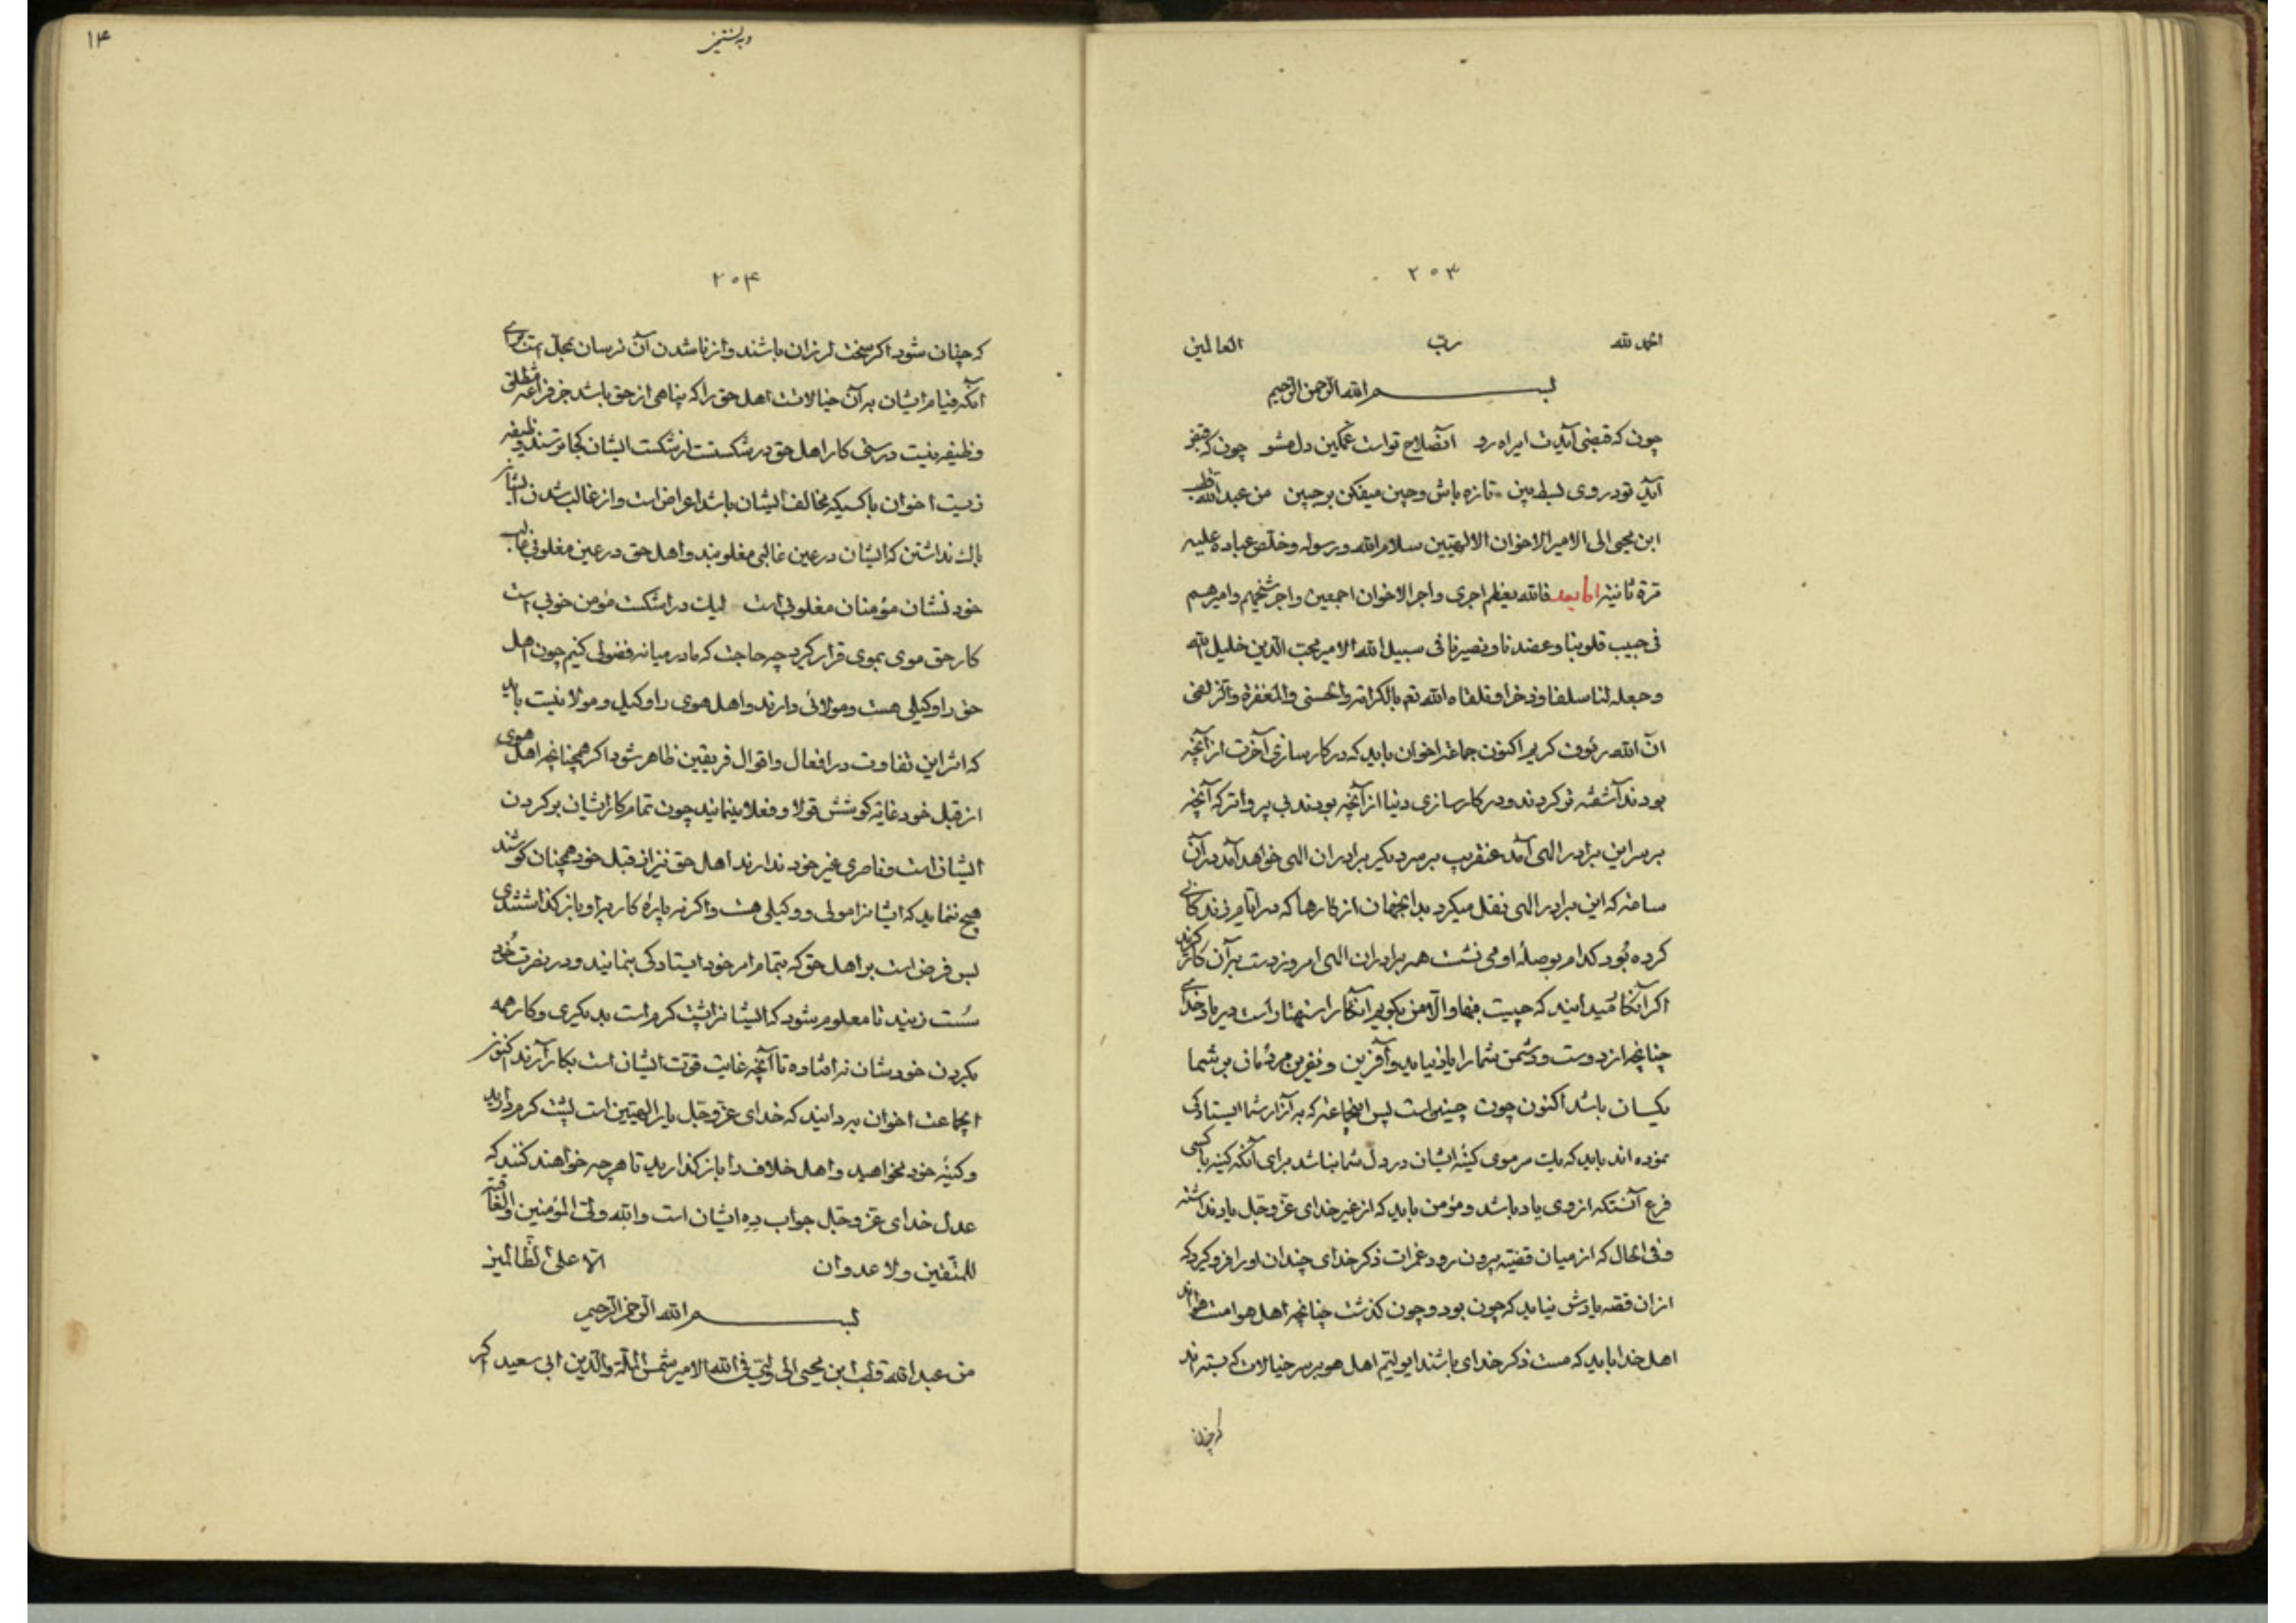 ۲۰۳
الحمد لله رب العالمین
بسم الله الرحمن الرحیم
چون که قبضی آیدت ای راه رو آن صلاح تو است غمکین دل مشو چون که قبض
آید تو در روی بسط بین تازه باش و چین میفکن بر جبین من عبدالله قطب
ابن محیی الی الامیر الاخوان الالهیین سلام الله و رسوله و خلّص عباده علیه
مرة ثانیة اما بعد فالله یعظم اجری و اجر الاخوان اجمعین و اجر شیخهم و امیرهم
فی حبیب قلوبنا و عضدنا و نصیرنا فی سبیل الله الامیر محب الدین خلیل الله
و جعله لنا سلفا و ذخرا و تلقاه الله تعم بالکرامة والحسنی والمغفرة والزلفی
ان الله رؤف کریم اکنون جماعة اخوان باید که در کار سازی آخرت از آنچه
بودند آشفته تر کردند و در کار سازی دنیا از آنچه بودند بی پرواتر که آنچه
بر سر این برادر الهی آمد عنقریب بر سر دیکر برادران الهی خواهد آمد در آن
ساعة که این برادر الهی نقل میکرد بدانجهان از کارها که در ایام زندکانی
کرده بود کدام بوصله او می نشست همه برادران الهی امروز دست بر آن کار زنند
اکر آنکار میدانید که چیست فبها و الا من بکویم آنکار استهتار است در یاد خدای
چنانچه از دوست و دشمن شما را یاد نیاید و آفرین و نفرین مردمان بر شما
یکسان باشد اکنون چون چنین است پس اینجماعة که به آزار شما ایستادکی
نموده اند باید که یک سر موی کینهٔ ایشان در دل شما نباشد برای آنکه کینه با کسی
فرع آنستکه از وی یاد باشد و مؤمن باید که از غیر خدای عزّ و جلّ یاد نداشته
و فی الحال که از میان قضیّه بیرون رود غمرات ذکر خدای چندان او را فرو کیرد که
از ان قصه یادش نیاید که چون بود و چون کذشت چنانچه اهل هوا مست هوااند
اهل خدا باید که مست ذکر خدای باشند اهل هوی بر سر خیالات که بسته اند
که چنان
۱۴
۲۰۴
که چنان شود اکر سخت لرزان باشند و از ناشدن آن ترسان بجاست برای
آنکه قیام ایشان به آن خیالات است اهل حق را که پناهی از حق باشد جز فراغة مطلق
وظیفه نیست درستی کار اهل حق در شکست است از شکست ایشان کجا ترسند وظیفه
زیست اخوان با کسیکه مخالف ایشان باشد اعراض است و از غالب شدن ایشان
باک نداشتن که ایشان در عین غالبی مغلوبند و اهل حق در عین مغلوبی غالب
خود نشان مؤمنان مغلوبی است لیک در اشکست مؤمن خوبی است
کار حق موی بموی قرار کیرد چه حاجت که ما در میانه فضولی کنیم چون اهل
حق را وکیلی هست و مولائی دارند و اهل هوی را وکیل و مولا نیست باید
که اثر این تفاوت در افعال و اقوال فریقین ظاهر شود اکر همچنانچه اهل هوی
از قبل خود غایة کوشش قولا و فعلا مینمایند چون تمام کار ایشان بر کردن
ایشان است و ناصری غیر خود ندارند اهل حق نیز از قبل خود همچنان کوشند
هیچ ننماید که ایشانرا مولی و وکیلی هست و اکر نه پارهٔ کار بر او باز کذاشتندی
پس فرض است بر اهل حق که بتمام امر خود ایستادکی ننمایند و در نصرت خود
سُست زیند تا معلوم شود که ایشانرا پشت کرم است بدیکری و کار همه
بکردن خودشان نه افتاده تا آنچه غایت قوّت ایشان است بکار آرند اکنون
ایجماعت اخوان بر دانید که خدای عزّ و جلّ یار الهیین است پشت کرم دارید
و کینهٔ خود مخواهید و اهل خلاف را باز کذارید تا هر چه خواهند کنند که
عدل خدای عز و جلّ جواب ده ایشان است والله ولی المؤمنین والعاقبة
للمتّقین ولا عدوان الا علی الظّالمین
بسم الله الرحمن الرحیم
من عبدالله قطب ابن محیی الی ولیی فی الله الامیر شمس الملة والدین ابی سعید اکر